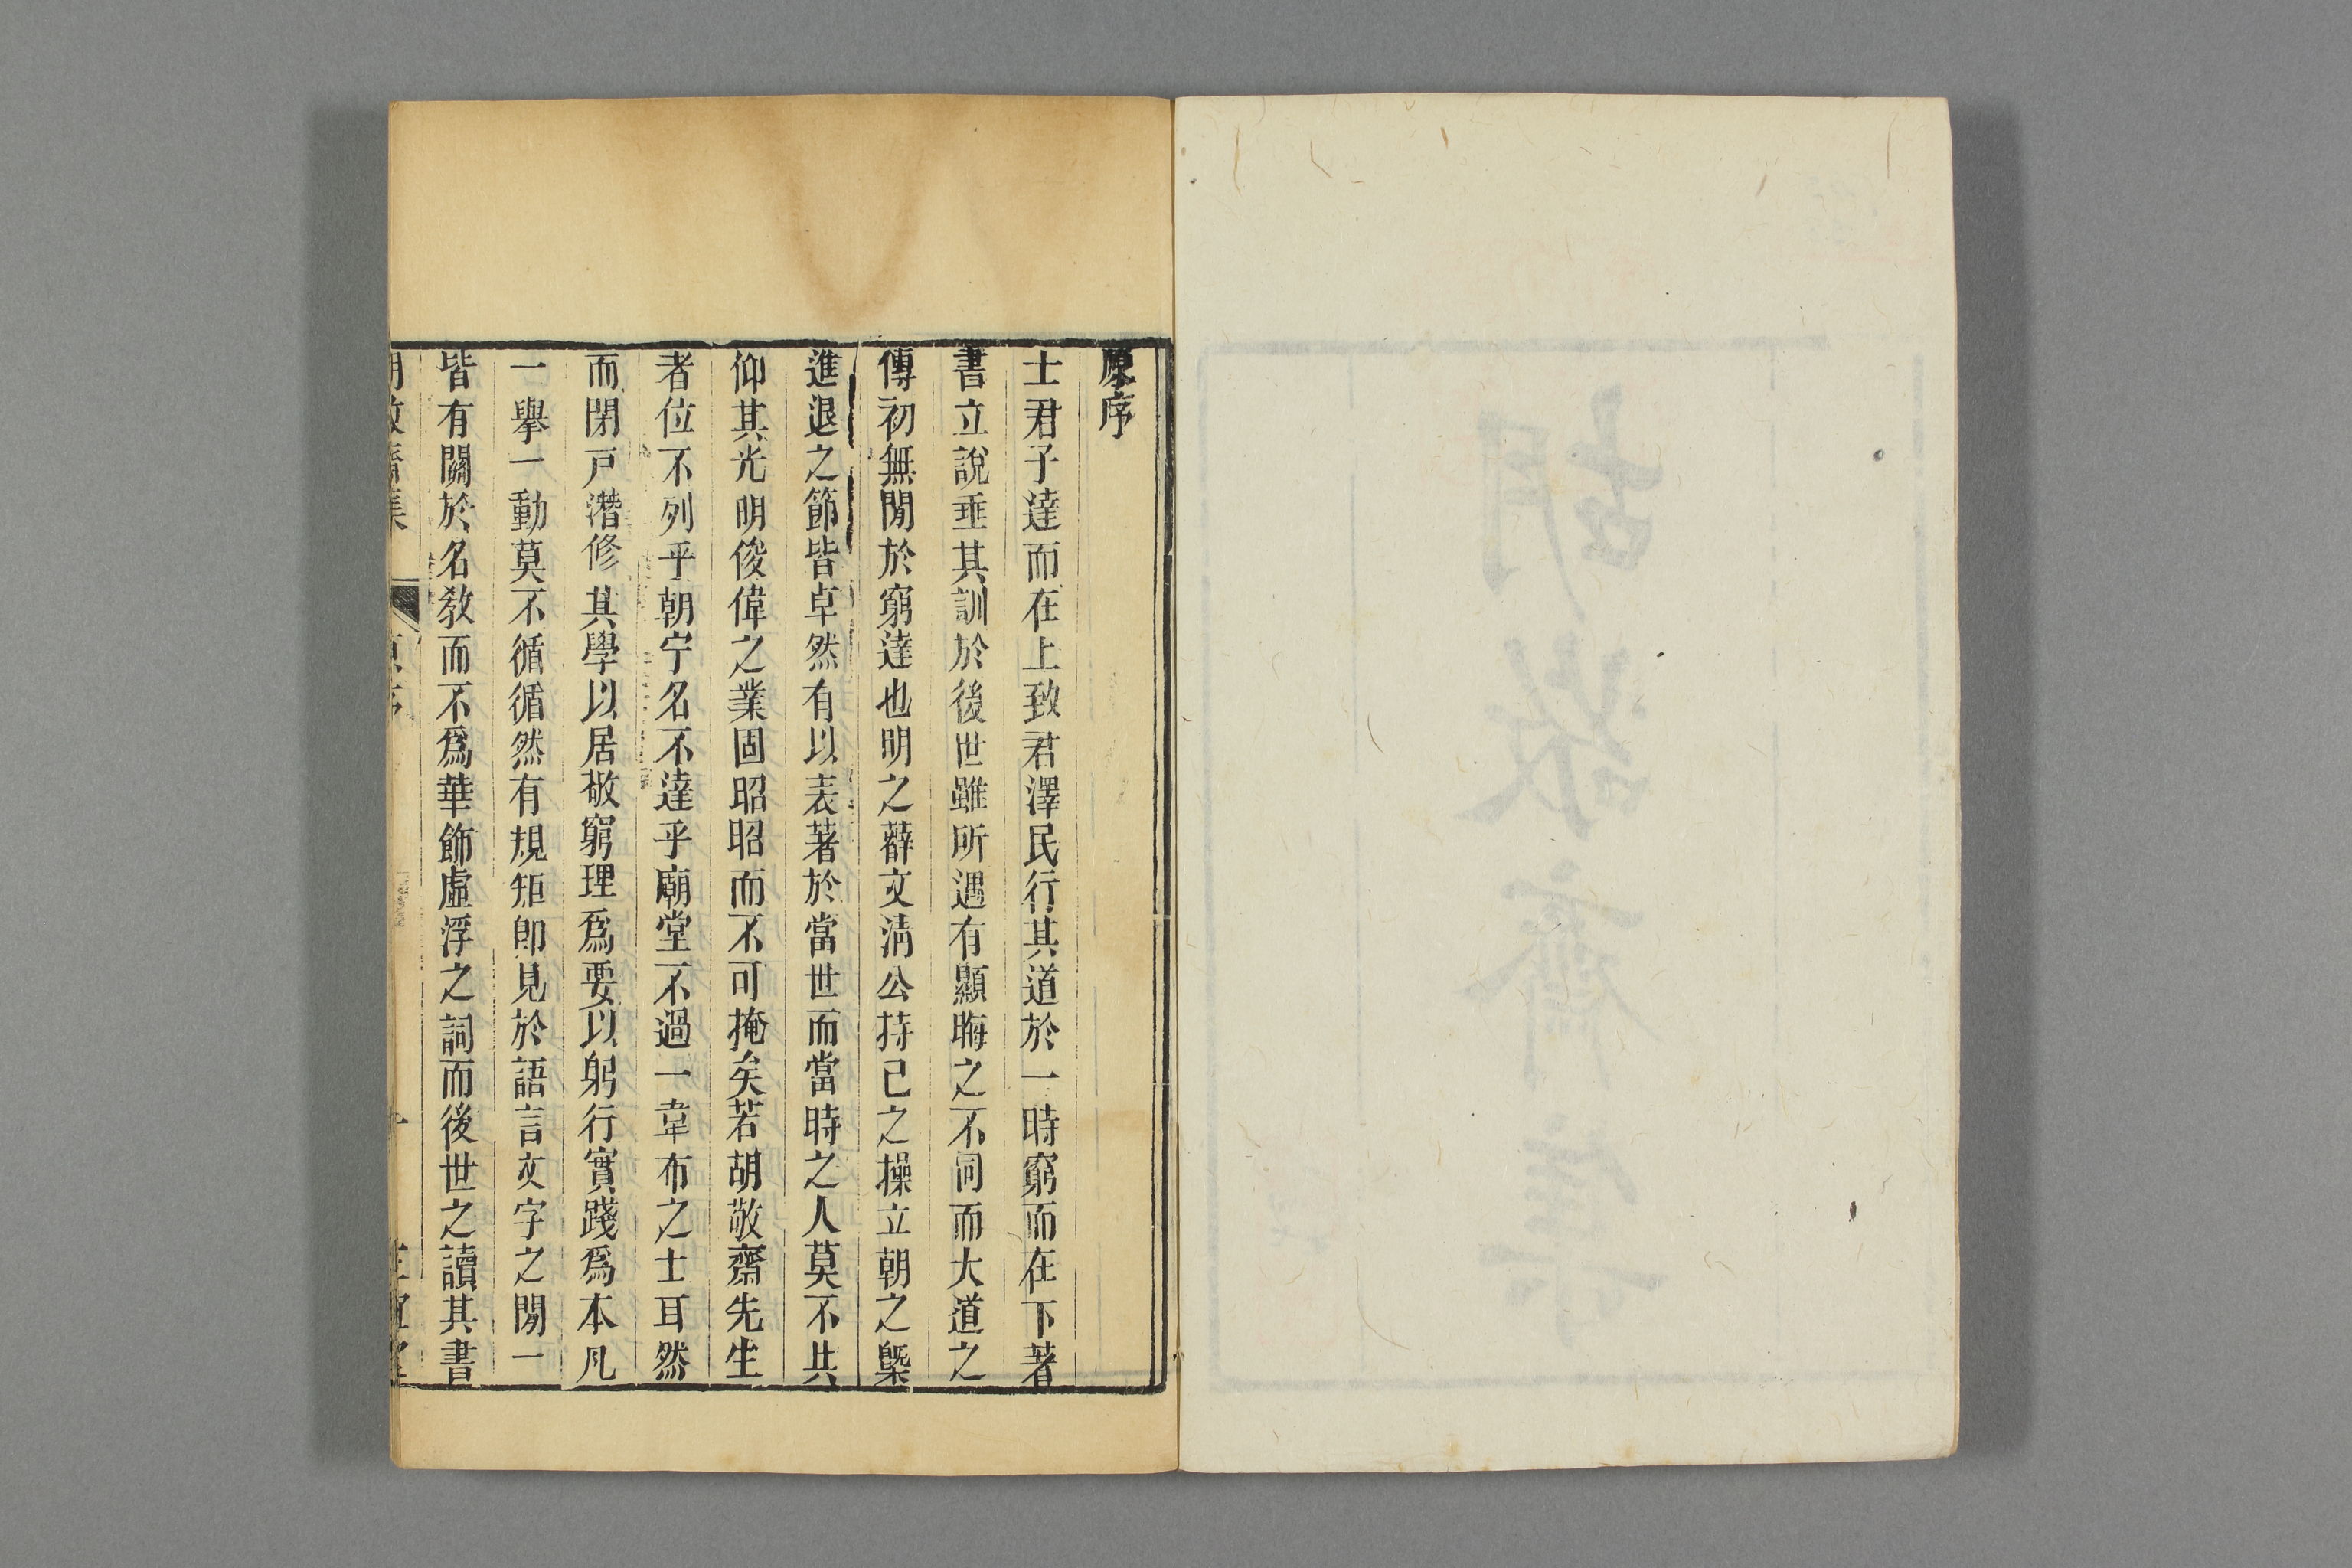 原序
士君子達而在上致君澤民行其道於一時窮而在下著
書立說垂其訓於後世雖所遇有顯晦之不同而大道之
傳初無閒於窮達也明之薛文淸公持己之操立朝之槩
進退之節皆卓然有以表著於當世而當時之人莫不共
仰其光明俊偉之業固昭昭而不可掩矣若胡敬齋先生
者位不列乎朝宁名不達乎廟堂不過一韋布之士耳然
而閉戸潛修其學以居敬窮理爲要以躬行實踐爲本凡
一舉一動莫不循循然有規矩卽見於語言文字之閒一
皆有關於名敎而不爲華飾虛浮之詞而後世之讀其書
胡敬齋集 原序 一 正誼堂
胡敬齋集